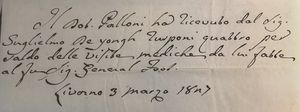 Il Dott. Palloni ha ricevuto dal Sig.
Guglielmo De yongh Rusponi quattro per
saldo delle visite mediche da lui fatte
al fu Sig. General Foot.
Livorno 3 marzo